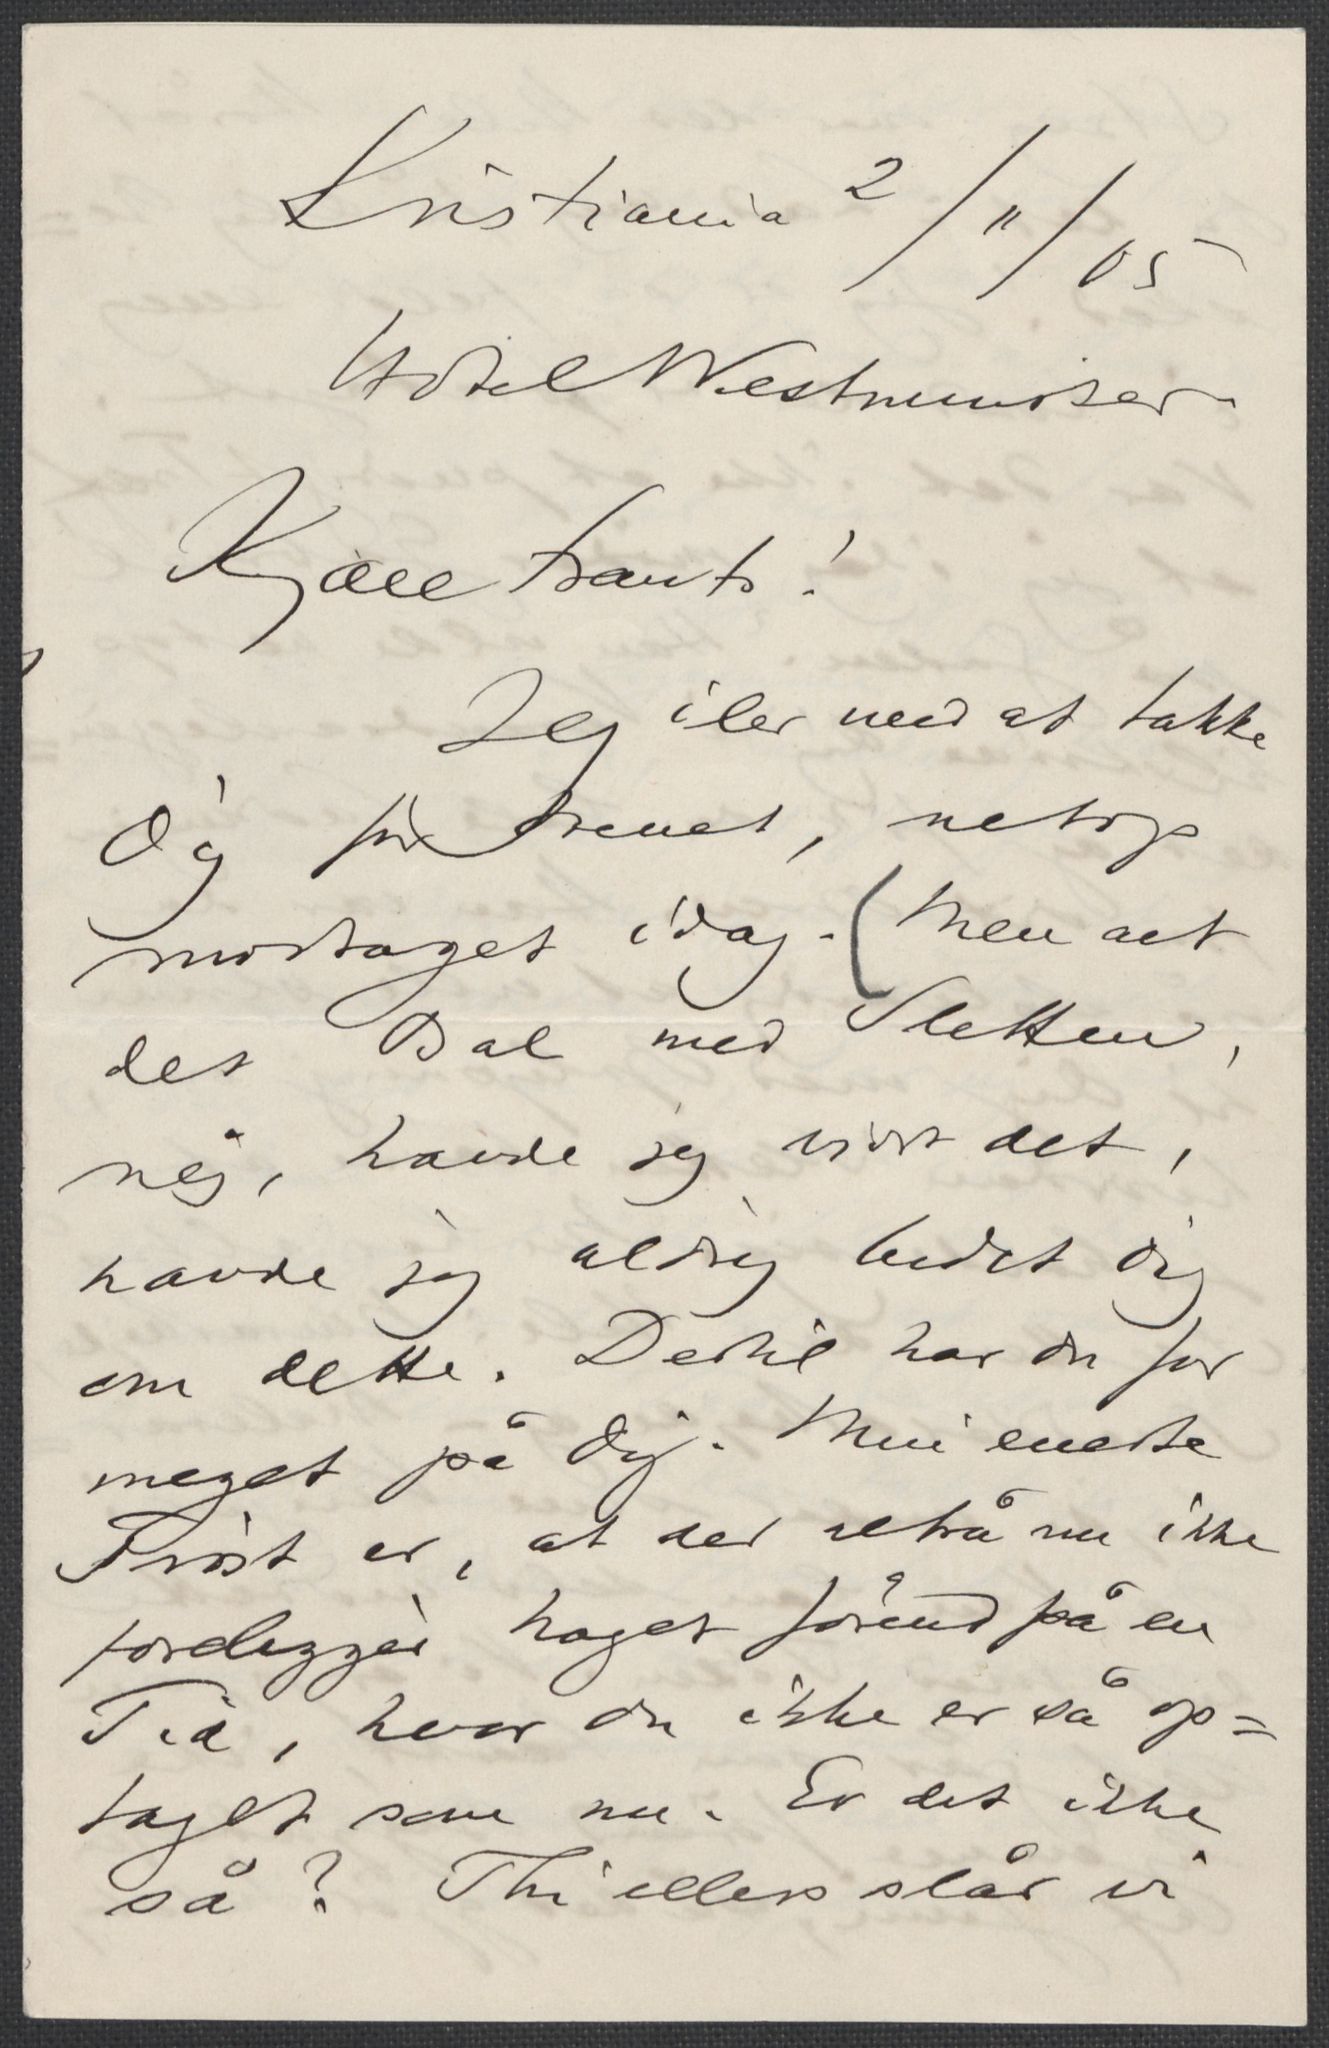 Kristiania 2/11/05
Hotel Westminster.
Kjære Frants!
Jeg iler med at takke
Dig for Brevet, netop
modtaget idag. (Men alt
det Bal med Sletten,
nej, havde jeg vidst det,
havde jeg aldrig bedet dig
om dette. Dertil har du for
meget på dig. Min eneste
Trøst er, at der altså nu ikke
foreligger noget førend på en
Tid, hvor du ikke er så op=
taget som nu. Er det ikke
så? Thi ellers slår vi